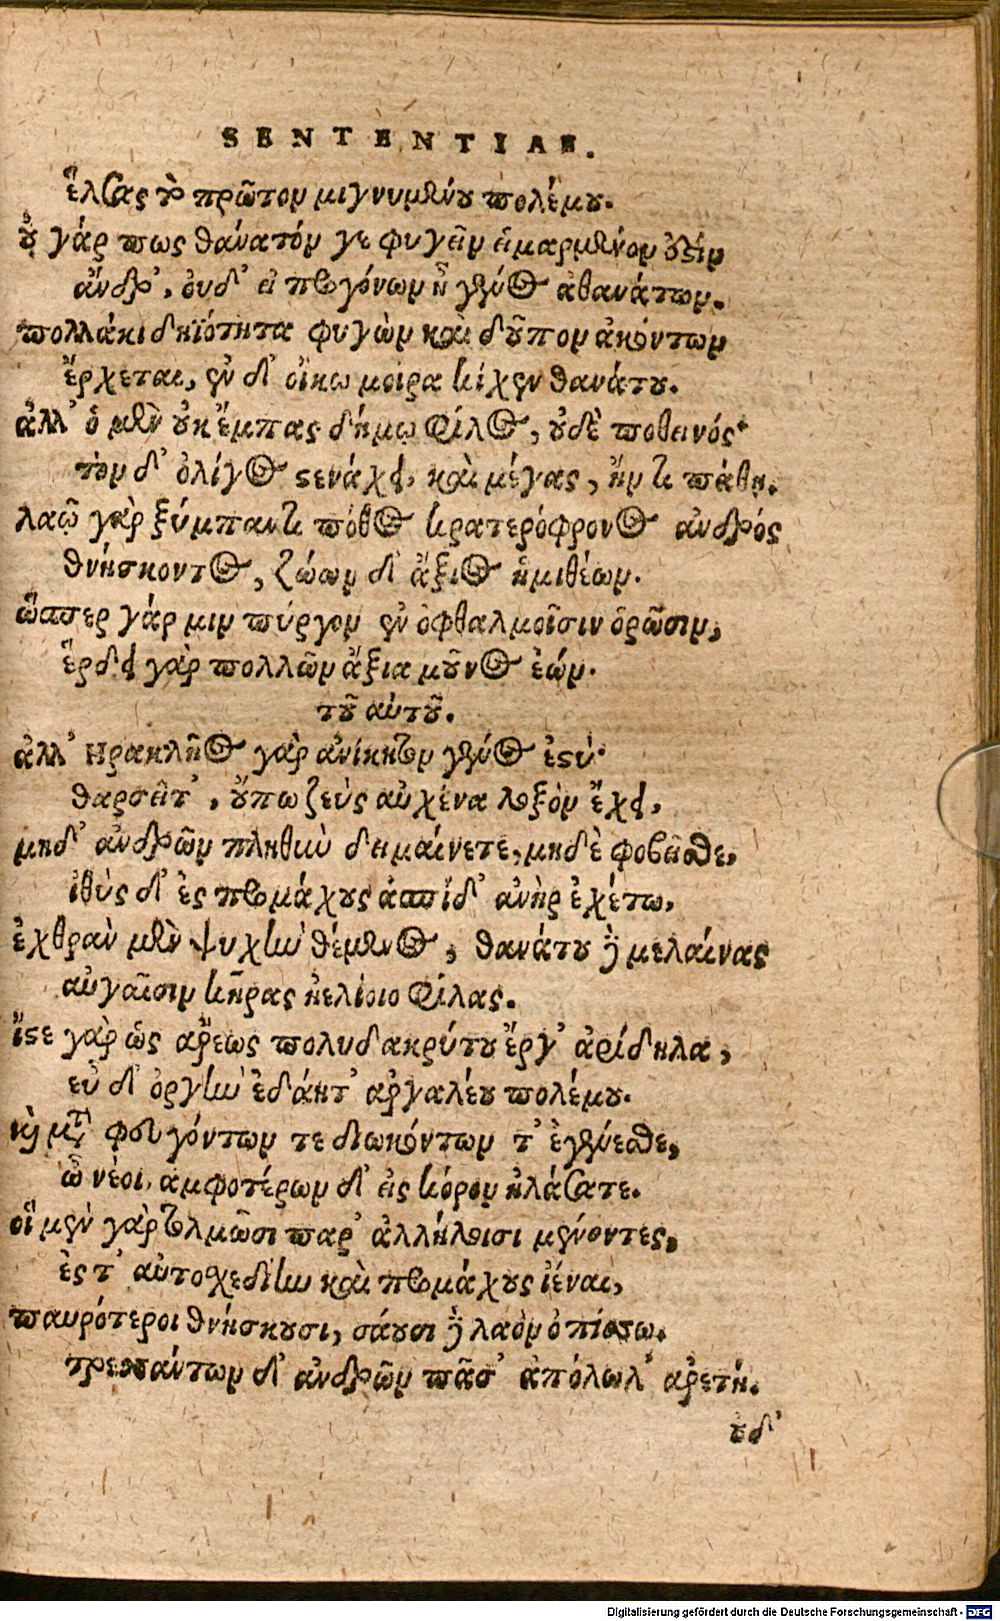 SENTENTIAE.
ἕλσας τὸ πρῶτον μιγνυμένου πολέμου.
οὐ γάρ πως θάνατόν γε φυγεῖν εἱμαρμένον ἐστὶν
ἄνδρ', οὐδ' εἰ προγόνων ᾖ γένος ἀθανάτων.
πολλάκι δηϊότητα φυγὼν καὶ δοῦπον ἀκόντων
ἔρχεται, ἐν δ' οἴκῳ μοῖρα κίχεν θανάτου.
ἀλλ' ὁ μὲν οὐκ ἔμπας δήμῳ φίλος, οὐδὲ ποθεινός·
τὸν δ' ὀλίγος στενάχει, καὶ μέγας, ἤν τι πάθῃ.
λαῷ γὰρ ξύμπαντι πόθος κρατερόφρονος ἀνδρός
θνήσκοντος, ζώων δ' ἄξιος ἡμιθέων.
ὥσπερ γάρ μιν πύργον ἐν ὀφθαλμοῖσιν ὁρῶσιν,
ἕρδει γὰρ πολλῶν ἄξια μοῦνος ἐών.
τοῦ αὐτοῦ.
ἀλλ' Ηρακλῆος γὰρ ἀνίκητον γένος ἐστὲ·
θαρσεῖτ', οὔπω ζεὺς αὐχένα λοξὸν ἔχει,
μηδ' ἀνδρῶν πληθὺν δειμαίνετε, μηδὲ φοβεῖσθε,
ἰθὺς δ' ἐς προμάχους ἀσπίδ' ἀνὴρ ἐχέτω,
ἐχθρὰν μὲν ψυχὴν θέμενος, θανάτου δὲ μελαίνας
αὐγαῖσιν κῆρας ἠελίοιο φίλας.
ἴστε γὰρ ὡς ἄρεως πολυδακρύτου ἔργ' ἀρίδηλα,
εὖ δ' ὀργὴν ἐδάητ' ἀργαλέου πολέμου.
καὶ μετὰ φευγόντων τε διωκόντων τ' ἐγένεσθε,
ὦ νέοι, ἀμφοτέρων δ' εἰς κόρον ἠλάσατε.
οἳ μὲν γὰρ τολμῶσι παρ' ἀλλήλοισι μένοντες,
ἐς τ' αὐτοσχεδίην καὶ προμάχους ἰέναι,
παυρότεροι θνήσκουσι, σάουσι δὲ λαὸν ὀπίσσω.
τρεσσάντων δ' ἀνδρῶν πᾶσ' ἀπόλωλ' ἀρετή.
οὐδ'
Digitalisierung gefördert durch die Deutsche Forschungsgemeinschaft - DFG